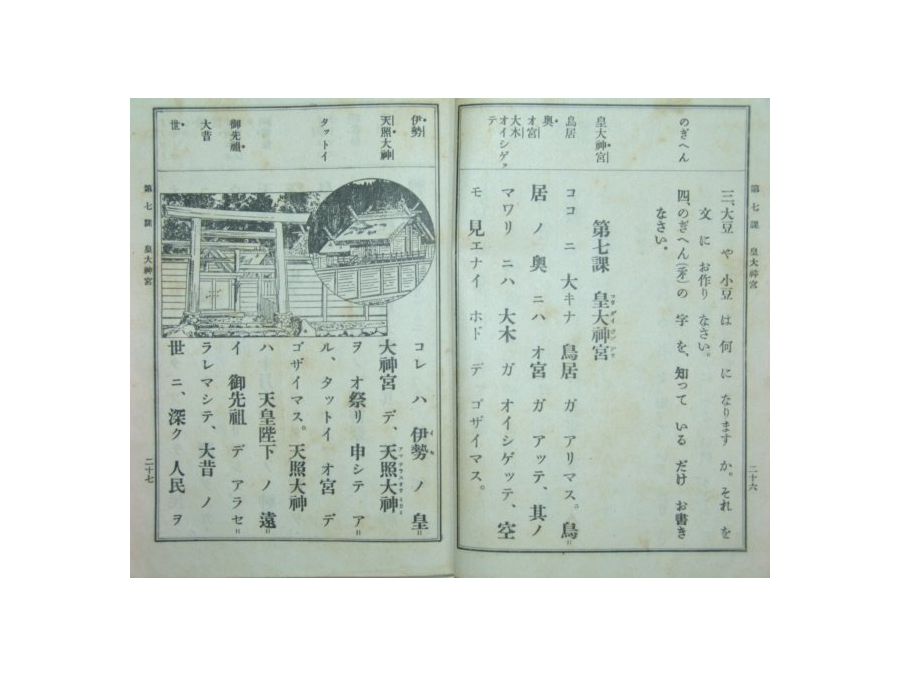 第七課 皇大神宮
二十六
のぎへん
皇大神宮
鳥居
奥
オ宮
大木
オイシゲッテ
三、大豆 や 小豆 は 何 に なります か。それ を
文 に お作り なさい。
四、のぎへん(禾)の 字 を、知って いる だけ お書き
なさい。
第七課 皇大神宮
ココ ニ 大キナ 鳥居 ガ アリマス。鳥
居 ノ 奥 ニハ オ宮 ガ アッテ、其ノ
マワリ ニハ 大木 ガ オイシゲッテ、空
モ 見エナイ ホド デ ゴザイマス。
伊勢
天照大神
タットイ
御先祖
大昔
世
コレ ハ 伊勢 ノ 皇
大神宮 デ、天照大神
ヲ オ祭リ 申シテ ア
ル、タットイ オ宮 デ
ゴザイマス。天照大神
ハ 天皇陛下 ノ 遠
イ 御先祖 デ アラセ
ラレマシテ、大昔 ノ
世 ニ、深ク 人民 ヲ
第七課 皇大神宮
二十七